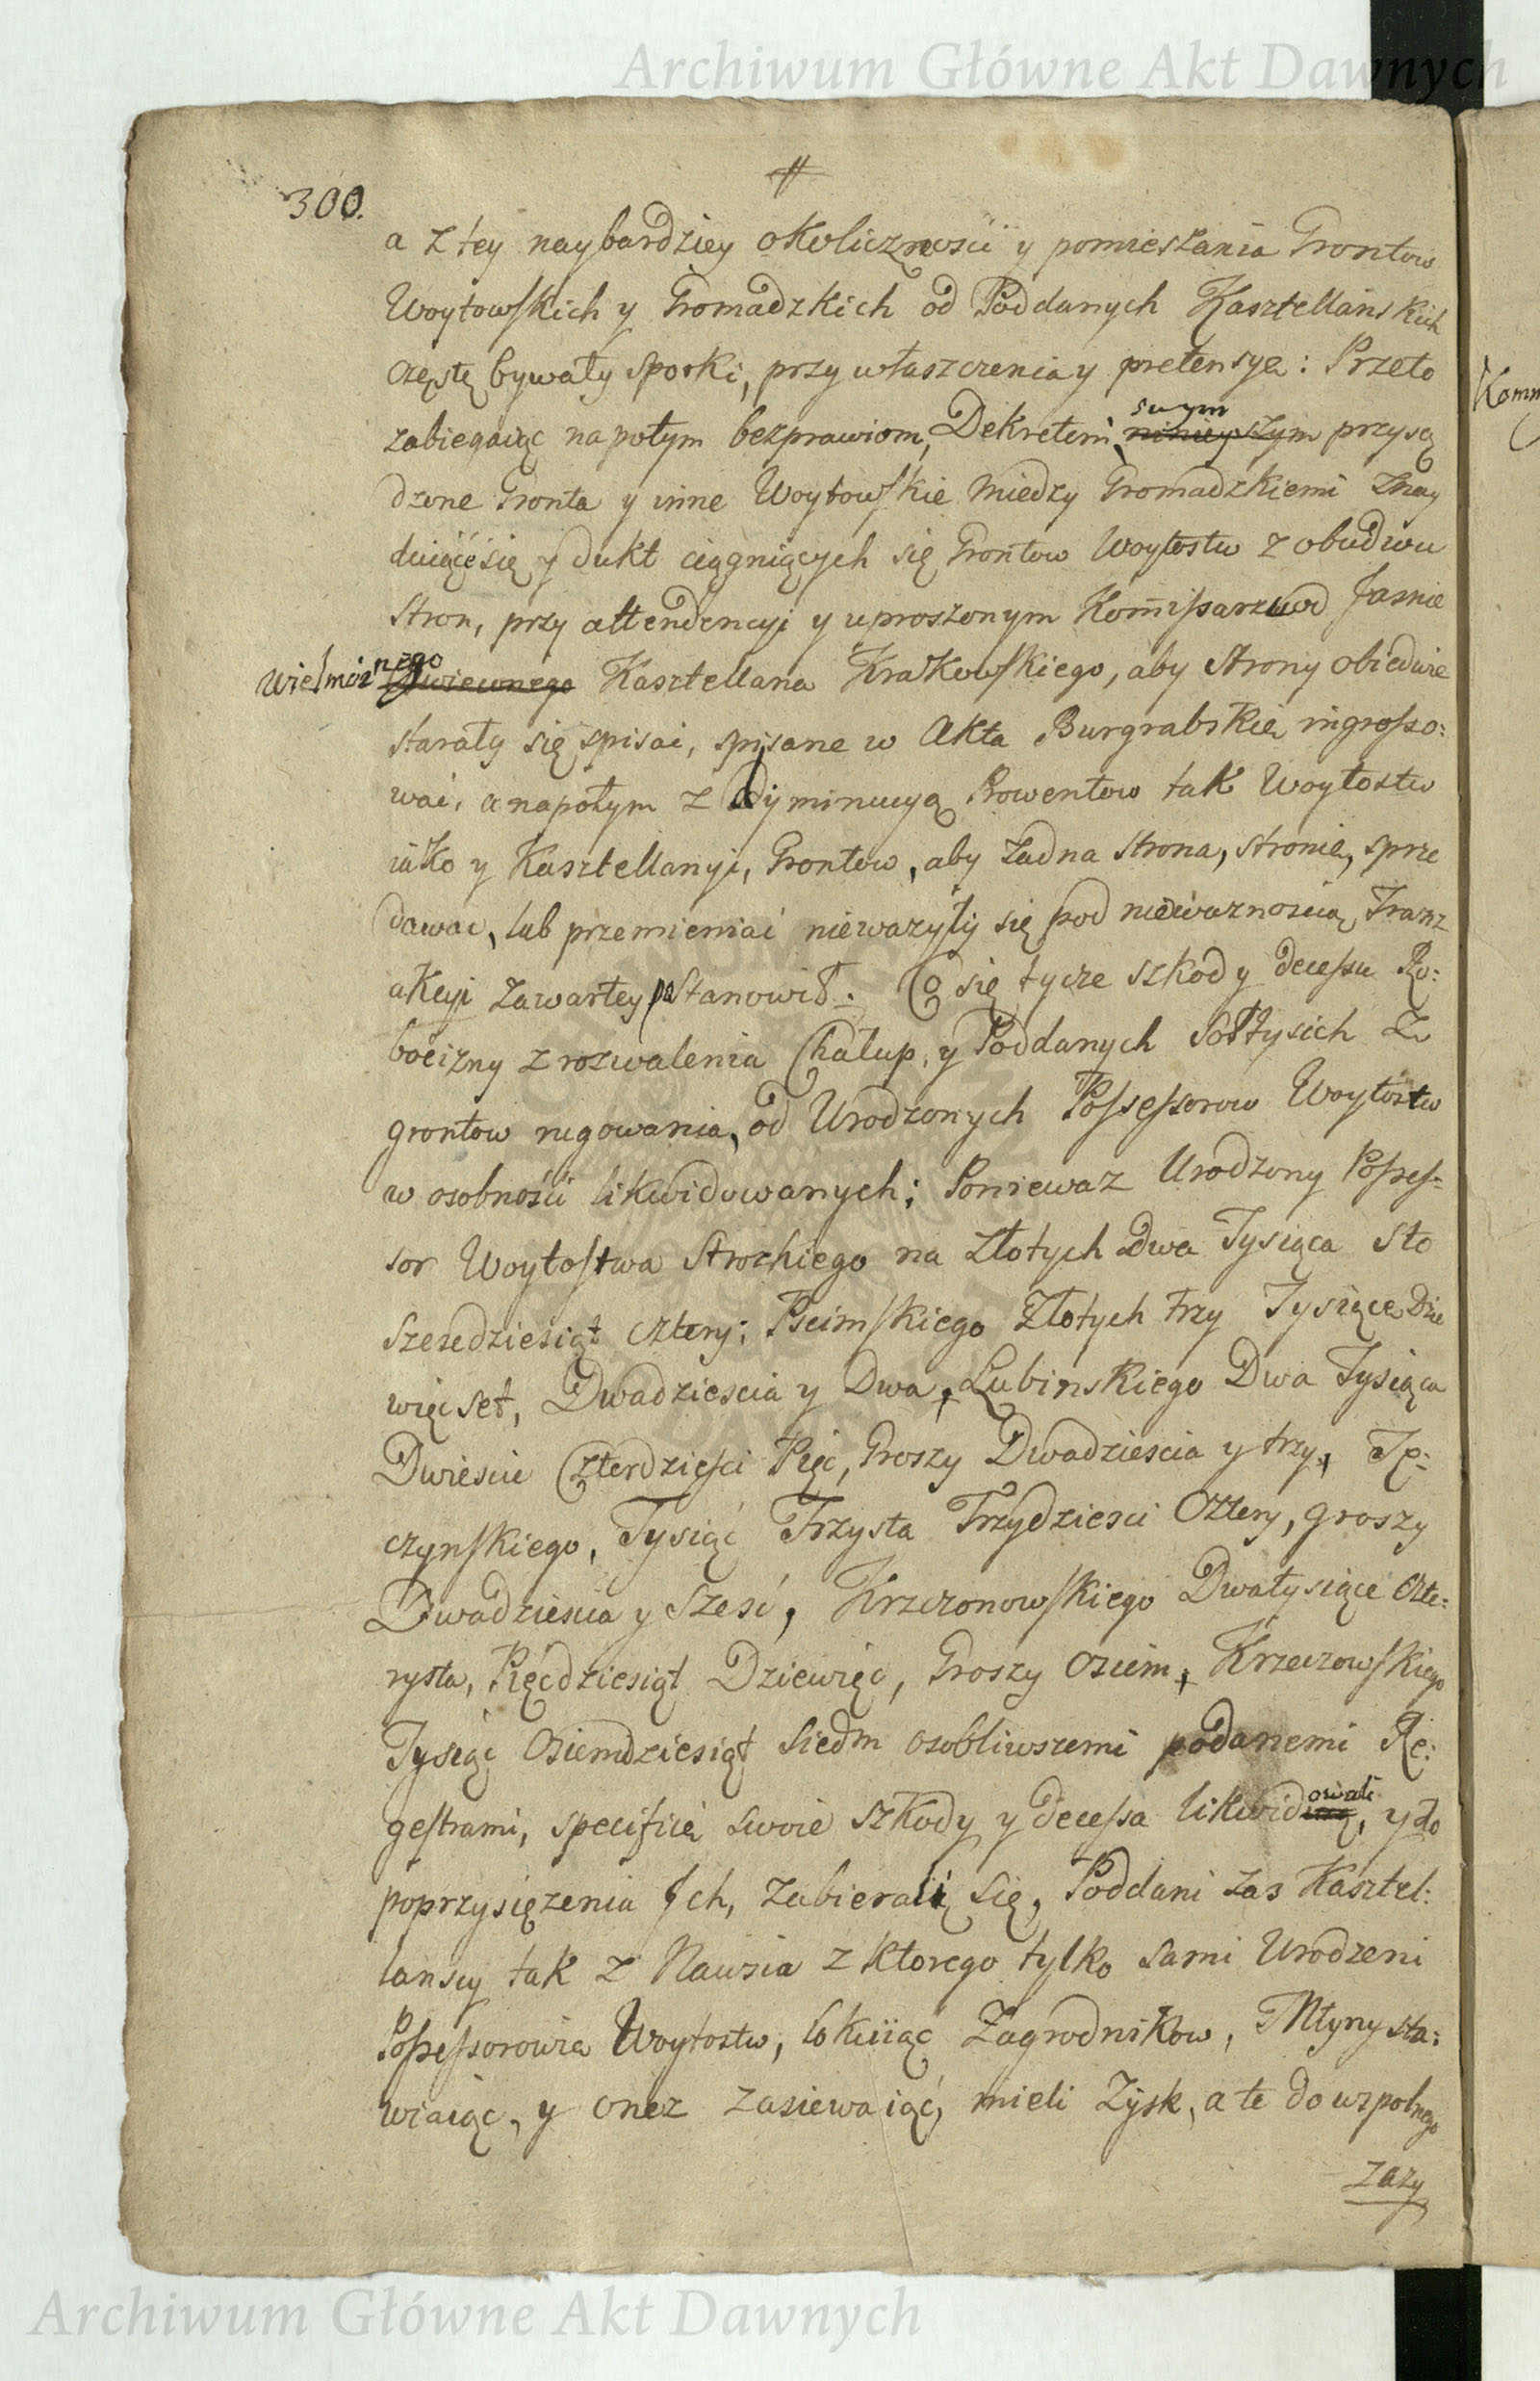 Archiwum Główne Akt Dawnych
300.
a z tey naybardziey okoliczności y pomieszania Grontow
Woytowskich y Gromadzkich od Poddanych Kasztellanskich
częstę bywały sporki, przywłaszczenia y pretensye: Przeto
zabiegaiąc napotym bezprawiom, Dekretem swym ninieyszym przysą
dzone Gronta y inne Woytowskie miedzy Gromadzkiemi znay
duiące się y dukt ciągniących się Grontow Woytostw z obudwu
Stron, przy attendencyi y uproszonym Kommissarzow Jasnie
Wielmożnego Kasztellana Krakowskiego, aby strony obiedwie
starały się spisać, spisane w Akta Burgrabskie ingrosso:
wać, a napotym z dyminucyą Prowentow tak Woytostw
iako y Kasztellanyi, Grontow, aby żadna strona, stronie, sprze
dawać, lub przemieniać nieważyły się pod nieważnością Tranz
akcyi zawartey postanowił. Co się tycze szkod y decessu Ro:
bocizny z rozwalenia Chalup, y Poddanych Sołtysich z
grontow rugowania, od Urodzonych Possessorow Woytostw
w osobności likwidowanych; Ponieważ Urodzony Posses-
sor Woytostwa Strozkiego na Złotych Dwa Tysiąca Sto
Szescdziesiąt cztery; Pcimskiego Złotych trzy Tysiące Dzie
więcset, Dwadziescia y Dwa, Lubinskiego Dwa Tysiąca
Dwiescie Czterdziesci Pięc, Groszy Dwadziescia y trzy, Tę:
czynskiego, Tysiąc Trzysta Trzydziesci Cztery, groszy
Dwadziescia y Szesć, Krzczonowskiego Dwatysiące czte:
rysta, Pięćdziesiąt Dziewięc, Groszy osiem, Krzeczowskiego
Tysiąc Osiemdziesiąt Siedm osobliwszemi podanemi Re:
gestrami, specifice swoie szkody y decessa likwidowali, y do
poprzysiężenia Ich, zabierali się, Poddani zas Kasztel:
lanscy tak z Nawsia z ktorego tylko sami Urodzeni
Possessorowie Woytostw, lokuiąc Zagrodnikow, Młyny sta:
wiaiąc, y onez zasiewaiąć, mieli Zysk, a te do wspolnego
zazy
Komm
Archiwum Główne Akt Dawnych